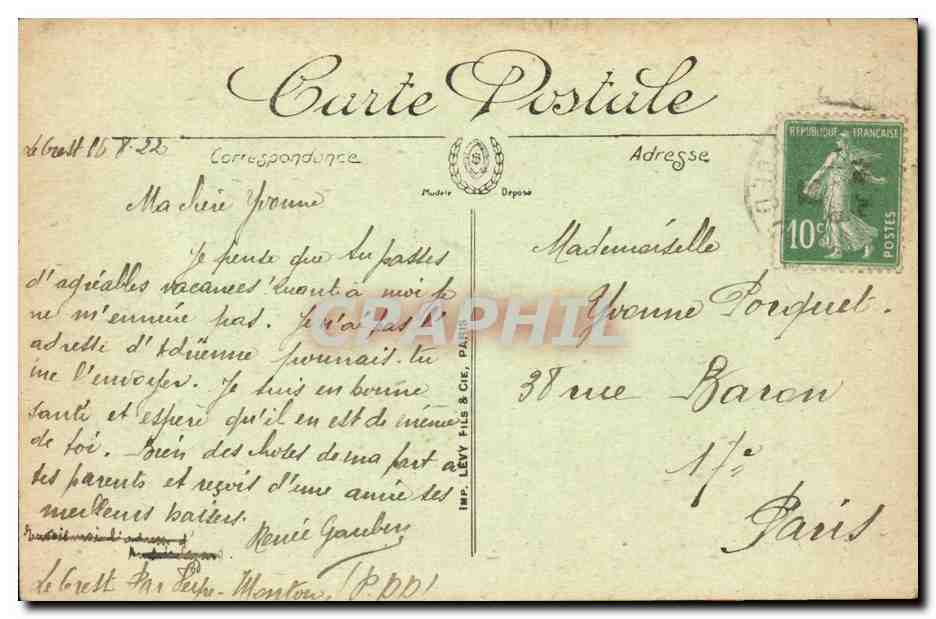 Carte Postale
Correspondance
Modèle Déposé
Adresse
RÉPUBLIQUE FRANÇAISE
10c
POSTES
Le Crest 16-8-22
Ma chère Yvonne
Je pense que tu passes
d'agréables vacances quant à moi je
ne m'ennuie pas. Je n'ai pas l'
adresse d' pourrais-tu
me l'envoyer. Je suis en bonne
santé et espère qu'il en est de même
de toi. Bien des choses de ma part à
tes parents et reçois d'une amie ses
meilleurs baisers.
Renée
Le Crest Par
IMP. LÉVY FILS & CIE, PARIS
Mademoiselle
Yvonne Porquet.
38 rue Baron
17e
Paris
CPAPHIL